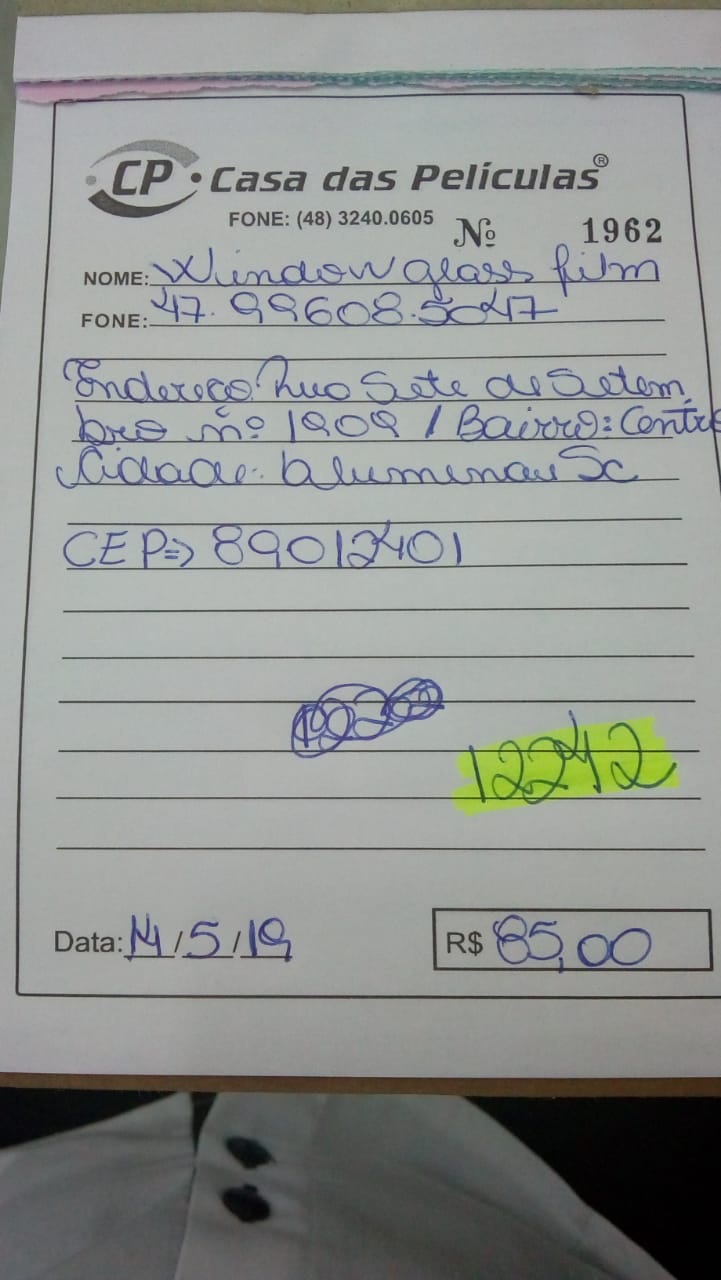 CP • Casa das Películas®
FONE: (48) 3240.0605 Nº 1962
NOME: Window glass film
FONE: 47.99608.5047
Endereço: Rua Sete de Setem
bro nº 1909 / Bairro: Centro
Cidade: Blumenau SC
CEP=> 89012401
12242
Data: 14/5/19 R$ 85,00